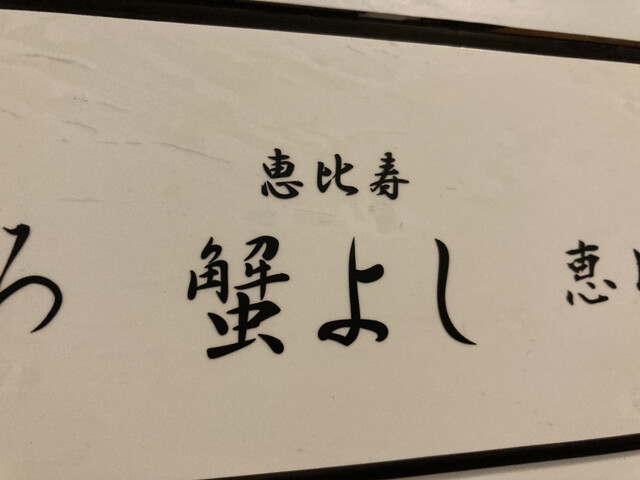 恵比寿
ろ 蟹よし 恵